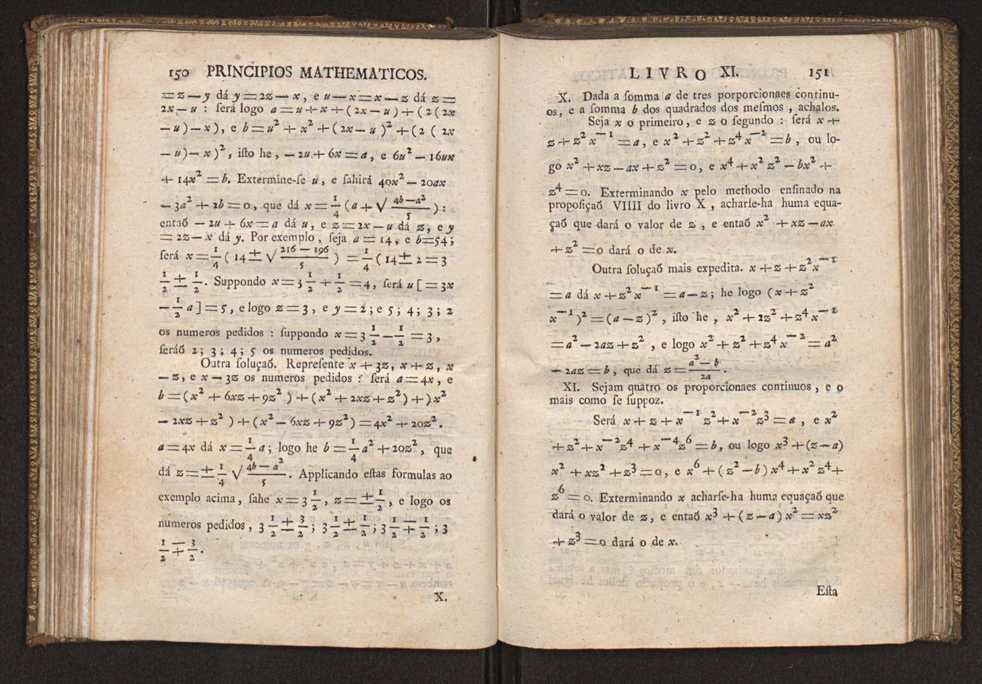 150 PRINCIPIOS MATHEMATICOS.
= z — y dá y = 2z — x, e u — x = x — z dá z =
2x — u : ſerá logo a = u + x + (2x — u) + (2 (2x
— u) — x), e b = u² + x² + (2x — u)² + (2 ( 2x
— u) — x)², iſto he, — 2u + 6x = a, e 6u² — 16ux
+ 14x² = b. Extermine-ſe u, e ſahirá 40x² — 20ax
— 3a² + 2b = 0, que dá x = 1/4 (a + √ (4b — a²)/5) :
entaõ — 2u + 6x = a dá u, e z = 2x — u dá z, e y
= 2z — x dá y. Por exemplo, ſeja a = 14, e b = 54;
ſerá x = 1/4 ( 14 ± √ (216 — 196)/5 ) = 1/4 ( 14 ± 2 = 3
1/2 ± 1/2. Suppondo x = 3 1/2 + 1/2 = 4, ſerá u [ = 3x
— 1/2 a ] = 5, e logo z = 3, e y = 2; e 5; 4; 3; 2
os numeros pedidos : ſuppondo x = 3 1/2 — 1/2 = 3,
ſeráõ 2; 3; 4; 5 os numeros pedidos.
Outra ſoluçaõ. Repreſente x + 3z, x + z, x
— z, e x — 3z os numeros pedidos : ſerá a = 4x, e
b = (x² + 6xz + 9z² ) + (x² + 2xz + z²) + )x²
— 2xz + z² ) + (x² — 6xz + 9z²) = 4x² + 20z².
a = 4x dá x = 1/4 a; logo he b = 1/4 a² + 20z², que
dá z = ± 1/4 √ (4b — a²)/5. Applicando eſtas formulas ao
exemplo acima, ſahe x = 3 1/2, z = ± 1/2, e logo os
numeros pedidos, 3 1/2 ± 3/2; 3 1/2 ± 1/2; 3 1/2 ∓ 1/2; 3
1/2 ∓ 3/2.
X.
LIVRO XI. 151
X. Dada a ſomma a de tres porporcionaes continu-
os, e a ſomma b dos quadrados dos meſmos, achalos.
Seja x o primeiro, e z o ſegundo : ſerá x +
z + z² x⁻¹ = a, e x² + z² + z⁴ x⁻² = b, ou lo-
go x² + xz — ax + z² = 0, e x⁴ + x² z² — bx² +
z⁴ = 0. Exterminando x pelo methodo enſinado na
propoſiçaõ VIIII do livro X, acharſe-ha huma equa-
çaõ que dará o valor de z, e entaõ x² + xz — ax
+ z² = 0 dará o de x.
Outra ſoluçaõ mais expedita. x + z + z² x⁻¹
= a dá x + z² x⁻¹ = a — z; he logo (x + z²
x⁻¹)² = (a — z)², iſto he, x² + 2z² + z⁴ x⁻²
= a² — 2az + z², e logo x² + z² + z⁴ x⁻² = a²
— 2az = b, que dá z = (a² — b)/2a.
XI. Sejam quatro os proporcionaes continuos, e o
mais como ſe ſuppoz.
Será x + z + x⁻¹ z² + x⁻² z³ = a, e x²
+ z² + x⁻² z⁴ + x⁻⁴ z⁶ = b, ou logo x³ + (z — a)
x² + xz² + z³ = 0, e x⁶ + (z² — b) x⁴ + x² z⁴ +
z⁶ = 0. Exterminando x acharſe-ha huma equaçaõ que
dará o valor de z, e entaõ x³ + (z — a) x² = xz²
+ z³ = 0 dará o de x.
Eſta